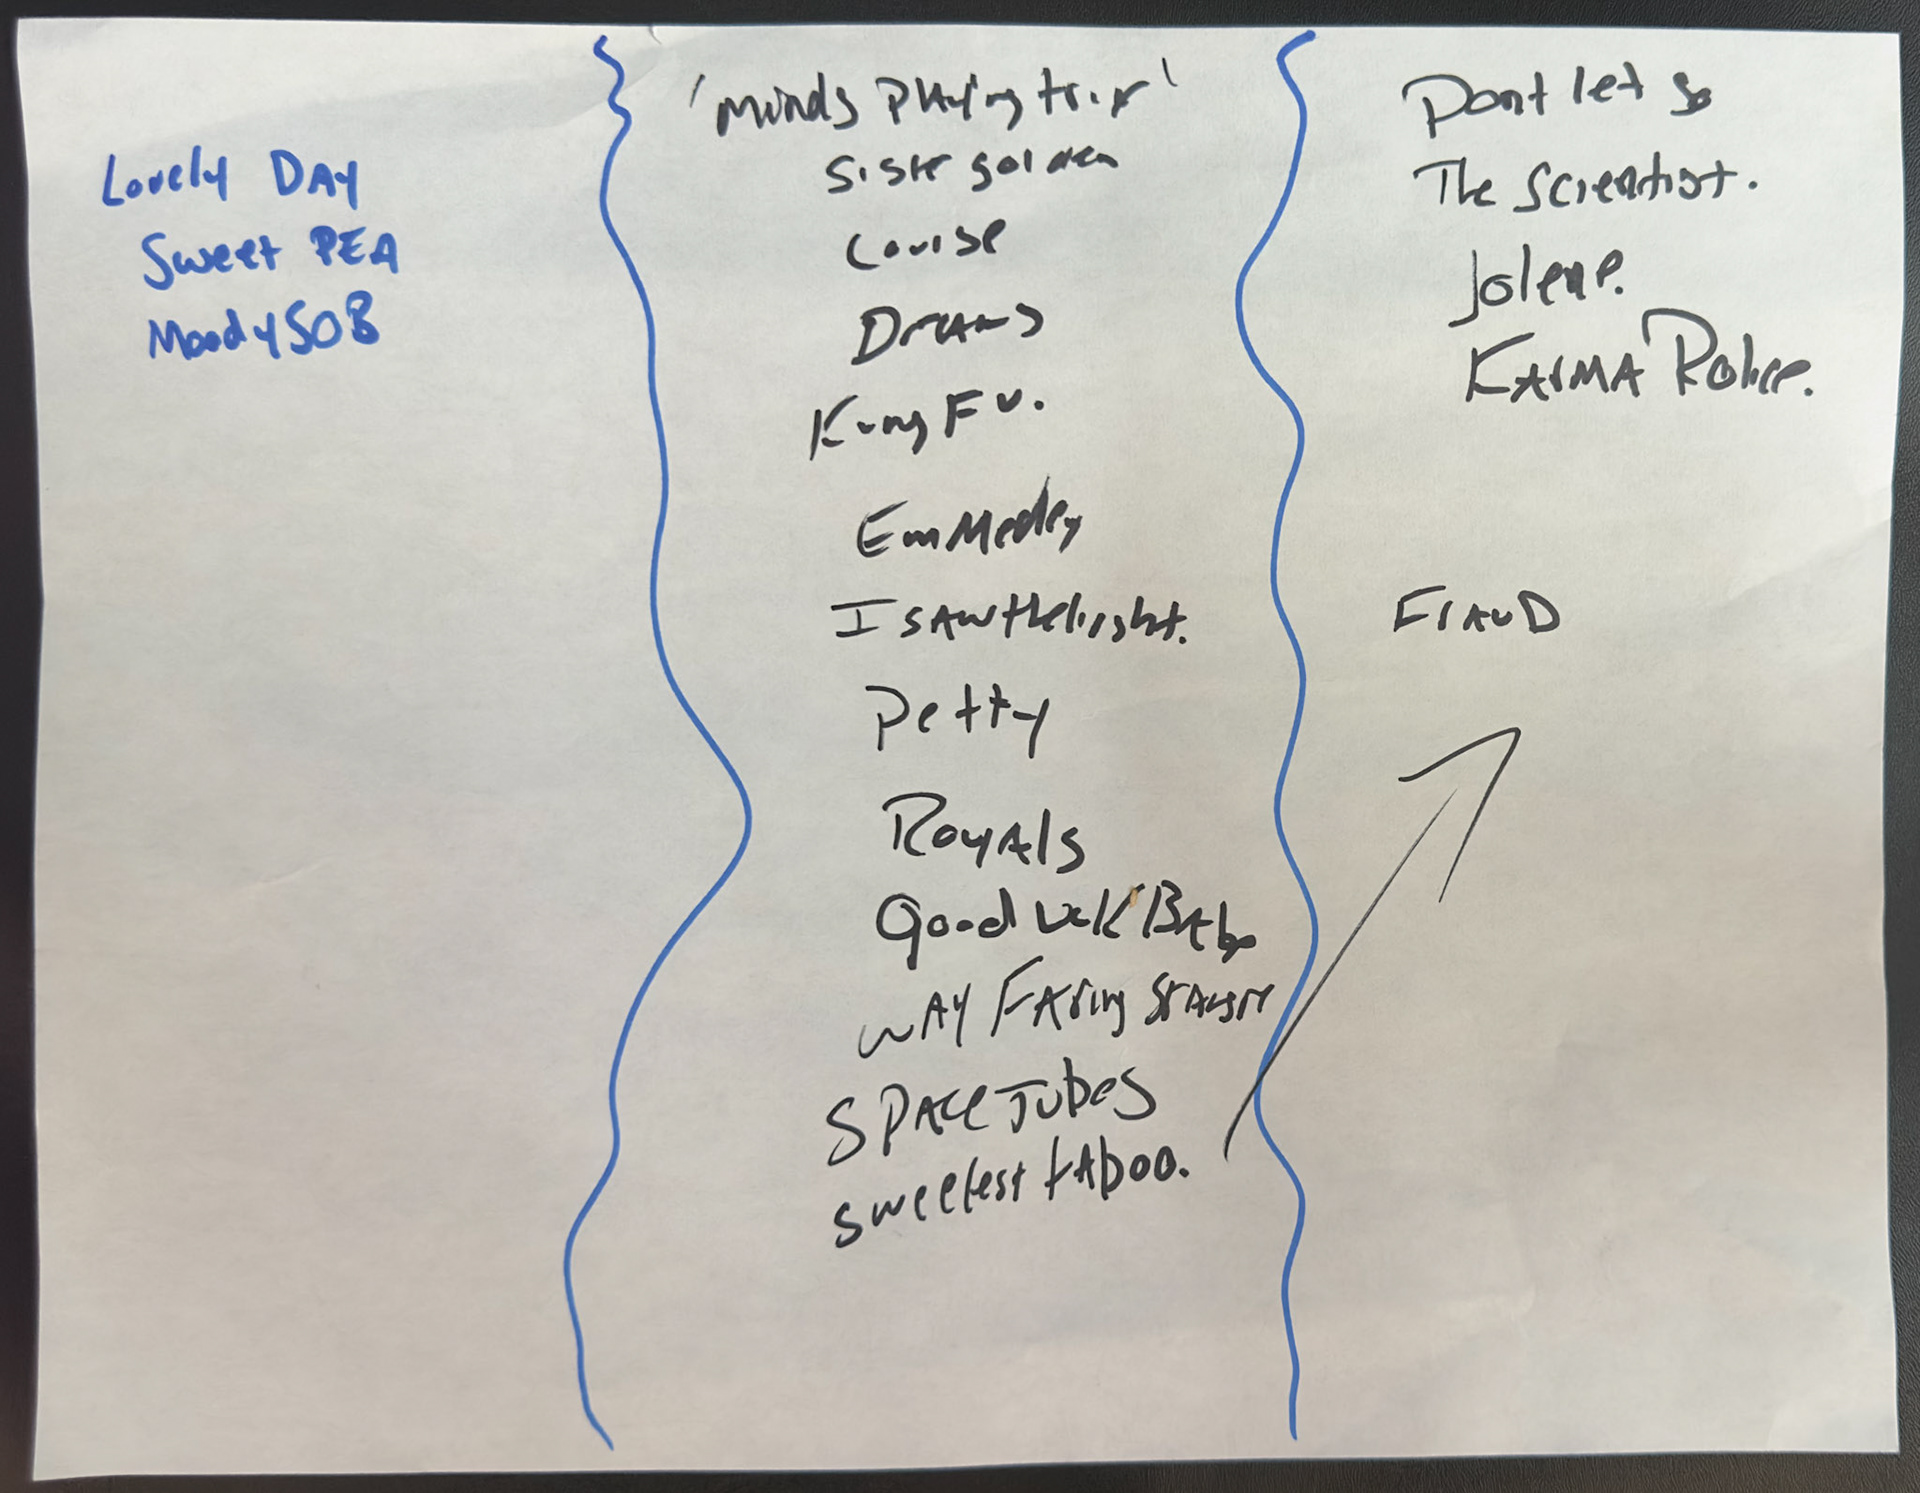 Lovely DAY
Sweet PEA
Moody SOB
'Minds Playing trix'
Sister golden
Louise
Dreams
Kung FU.
Em Medley
I SAW the light.
Petty
Royals
Good Luck Babe
WAY FAring Stranger
SPACE Jubes
sweetest tAboo.
Dont let go
The Scientist.
Jolene.
KArMA Police.
FrAUD